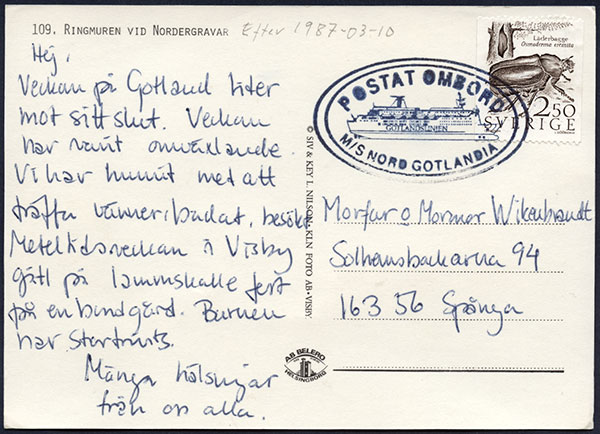 109. RINGMUREN VID NORDERGRAVAR
Efter 1987-03-10
Hej,
Veckan på Gotland lider
mot sitt slut. Veckan
har varit omväxlande.
Vi har hunnit med att
träffa vänner, badat, besökt
Medeltidsveckan i Visby
gått på lammskalle fest
på en bondgård. Barnen
har stortrivts.
Många hälsningar
från oss alla.
© SIV & KEY L. NILSON, KLN FOTO AB-VISBY.
POSTAT OMBORD
GOTLANDSLINJEN
M/S NORD GOTLANDIA
Läderbagge
Osmoderma eremita
2.50
SVERIGE
Morfar o Mormor Wikenbrandt
Solhemsbackarna 94
163 56 Spånga
AB BELERO
HELSINGBORG